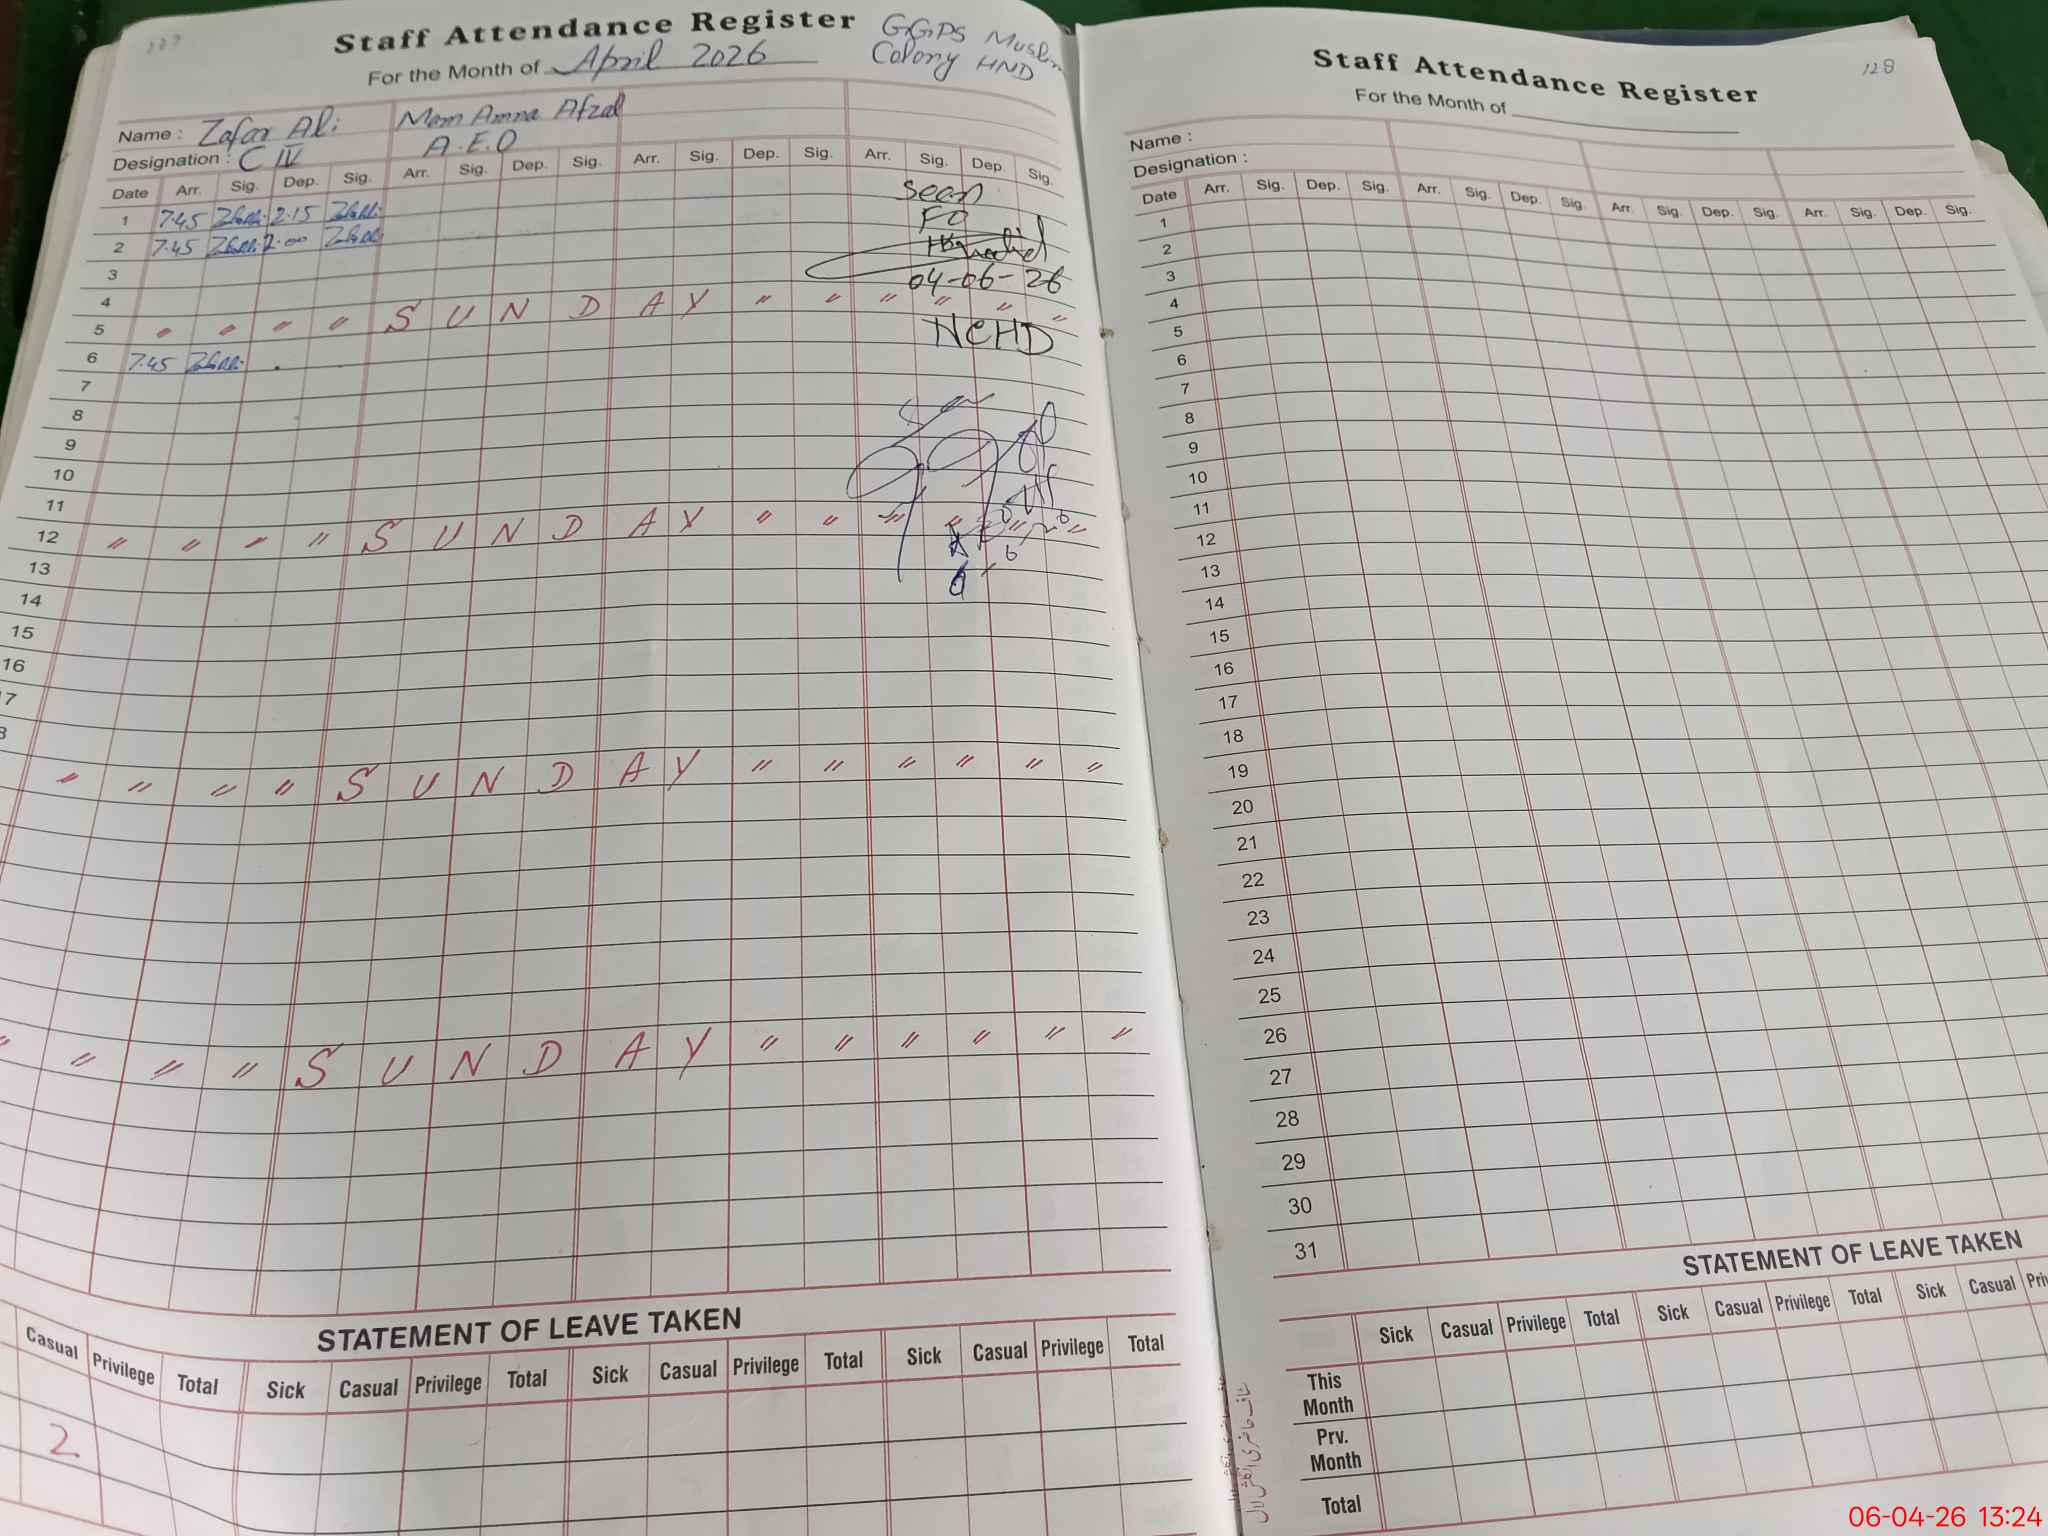 127
Staff Attendance Register
GGPS Muslim
Colony HND
For the Month of April 2026
Name : Zafar Ali Mam Amna Afzal
Designation : C IV A.E.O
Date Arr. Sig. Dep. Sig. Arr. Sig. Dep. Sig. Arr. Sig. Dep. Sig. Arr. Sig. Dep. Sig.
1 7:45 Zafar Ali 2:15 Zafar Ali
2 7:45 Zafar Ali 2:00 Zafar Ali
3
4
5 " " " " S U N D A Y " " " " " "
6 7:45 Zafar Ali
7
8
9
10
11
12 " " " " S U N D A Y " " " " " "
13
14
15
16
7
8
" " " " S U N D A Y " " " " " "
" " " " S U N D A Y " " " " " "
Seen
FO
04-06-26
NCHD
STATEMENT OF LEAVE TAKEN
Casual Privilege Total Sick Casual Privilege Total Sick Casual Privilege Total Sick Casual Privilege Total
2
128
Staff Attendance Register
For the Month of
Name :
Designation :
Date Arr. Sig. Dep. Sig. Arr. Sig. Dep. Sig. Arr. Sig. Dep. Sig. Arr. Sig. Dep. Sig.
1
2
3
4
5
6
7
8
9
10
11
12
13
14
15
16
17
18
19
20
21
22
23
24
25
26
27
28
29
30
31
STATEMENT OF LEAVE TAKEN
Sick Casual Privilege Total Sick Casual Privilege Total Sick Casual Pri
This
Month
Prv.
Month
Total
06-04-26 13:24